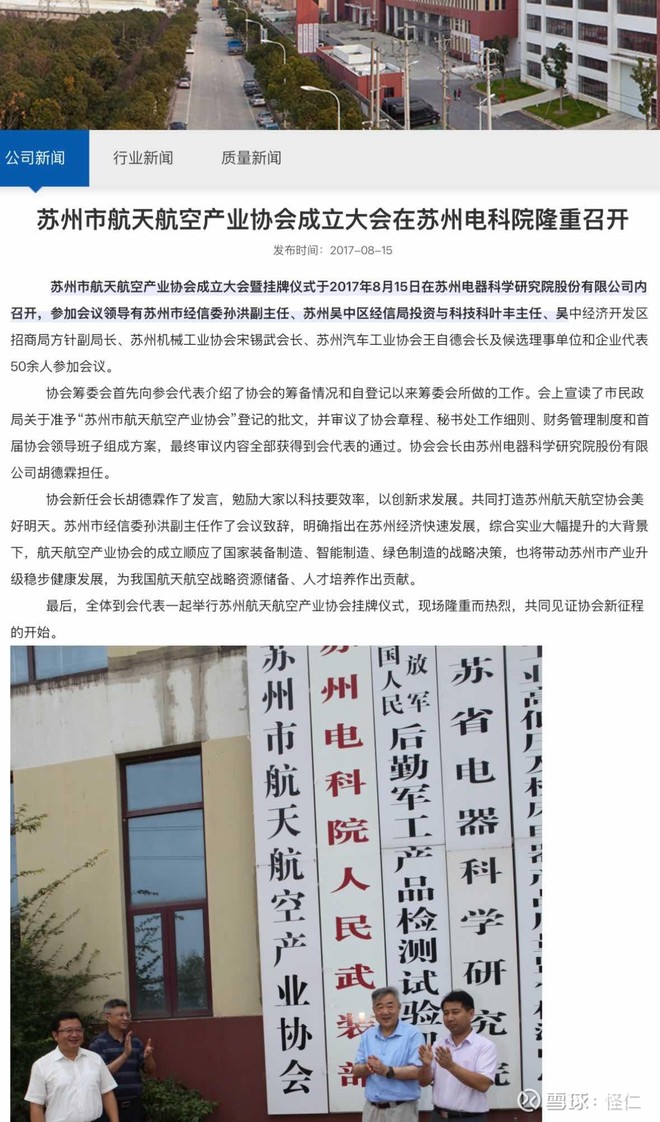 公司新闻
行业新闻
质量新闻
苏州市航天航空产业协会成立大会在苏州电科院隆重召开
发布时间：2017-08-15
苏州市航天航空产业协会成立大会暨挂牌仪式于2017年8月15日在苏州电器科学研究院股份有限公司内
召开，参加会议领导有苏州市经信委孙洪副主任、苏州吴中区经信局投资与科技科叶丰主任、吴中经济开发区
招商局方针副局长、苏州机械工业协会宋锡武会长、苏州汽车工业协会王自德会长及候选理事单位和企业代表
50余人参加会议。
协会筹委会首先向参会代表介绍了协会的筹备情况和自登记以来筹委会所做的工作。会上宣读了市民政
局关于准予“苏州市航天航空产业协会”登记的批文，并审议了协会章程、秘书处工作细则、财务管理制度和首
届协会领导班子组成方案，最终审议内容全部获得到会代表的通过。协会会长由苏州电器科学研究院股份有限
公司胡德霖担任。
协会新任会长胡德霖作了发言，勉励大家以科技要效率，以创新求发展。共同打造苏州航天航空协会美
好明天。苏州市经信委孙洪副主任作了会议致辞，明确指出在苏州经济快速发展，综合实业大幅提升的大背景
下，航天航空产业协会的成立顺应了国家装备制造、智能制造、绿色制造的战略决策，也将带动苏州市产业升
级稳步健康发展，为我国航天航空战略资源储备、人才培养作出贡献。
最后，全体到会代表一起举行苏州航天航空产业协会挂牌仪式，现场隆重而热烈，共同见证协会新征程
的开始。
苏州市航天航空产业协会
苏州电科院人民武装部
国人民
放军
后勤军工产品检测试验
苏省电器科学研究院
雪球：怪仁